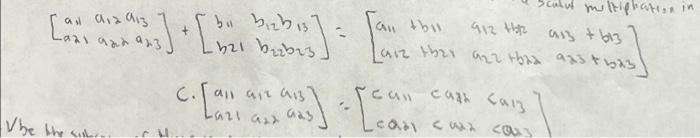 scalar multiplication in
[a11 a12 a13 a21 a22 a23] + [b11 b12 b13 b21 b22 b23] = [a11 + b11 a12 + b12 a13 + b13 a12 + b21 a22 + b22 a23 + b23]
C. [a11 a12 a13 a21 a22 a23] = [ca11 ca12 ca13 ca21 ca22 ca23]
V be the